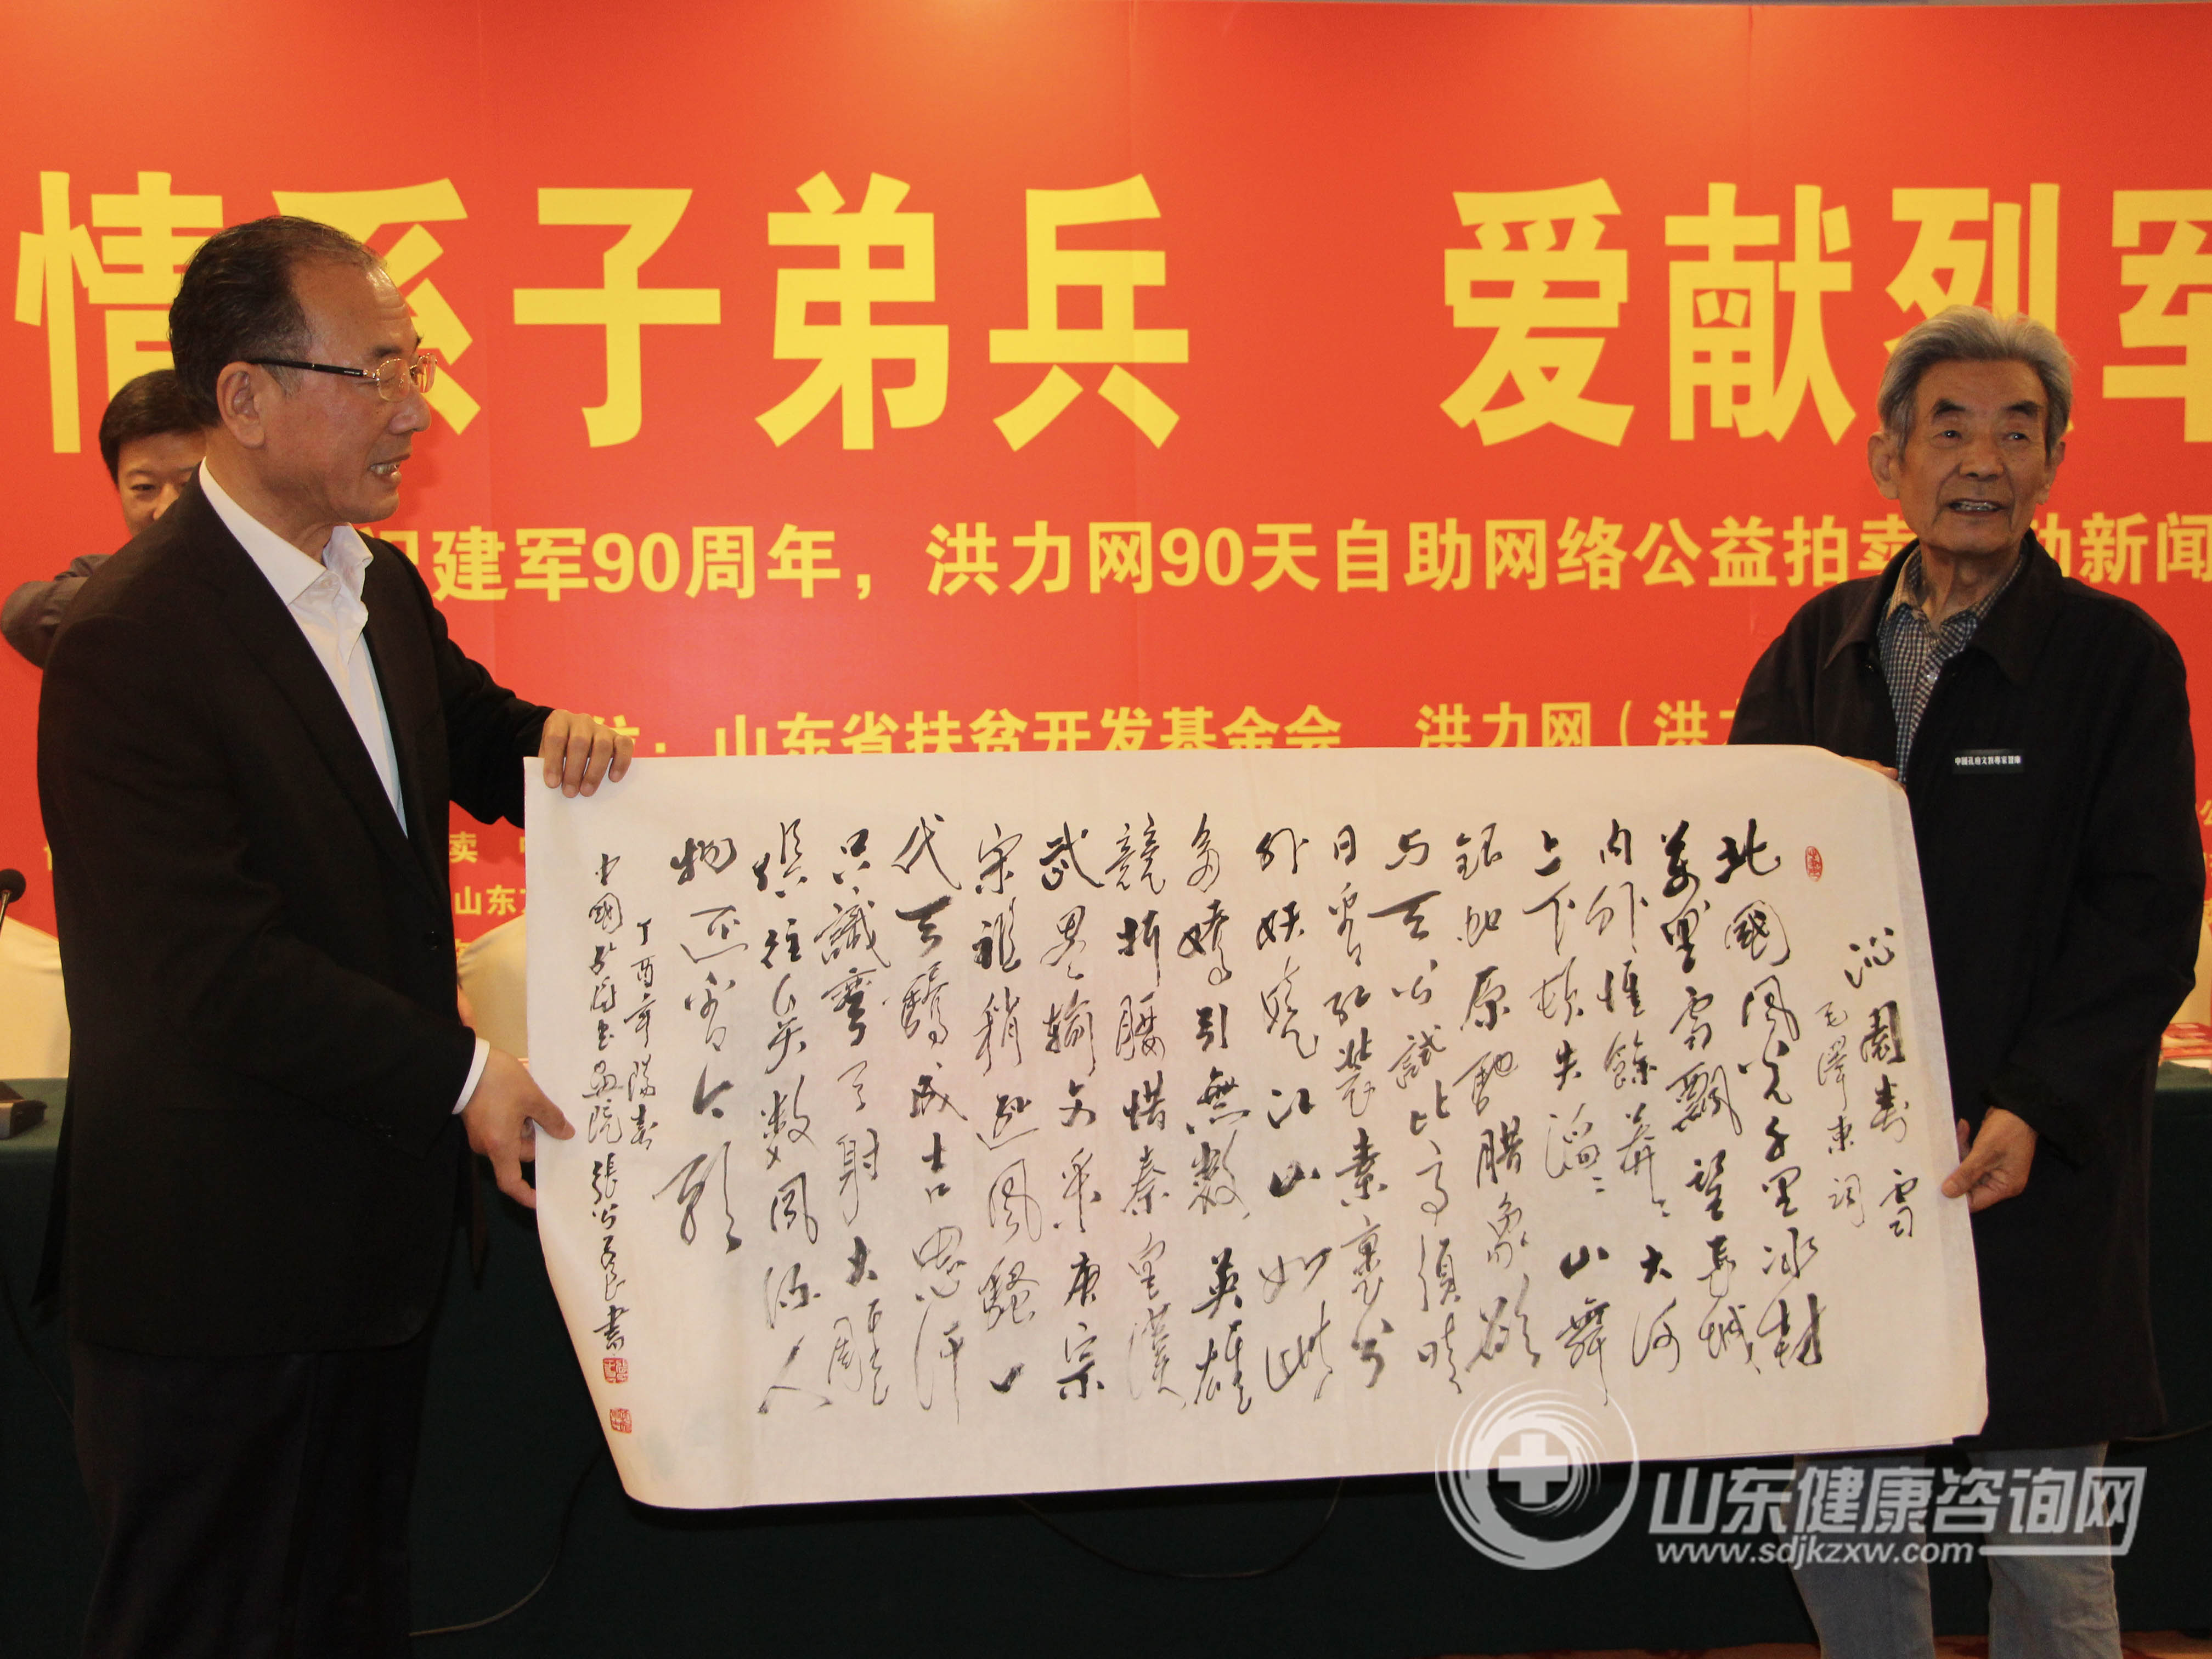 情系子弟兵 爱献烈军
建军90周年，洪力网90天自助网络公益拍卖 动新闻
：山东省扶贫开发基金会 洪力网（洪
卖
山东
沁園春 雪
毛澤東詞
北國風光千里冰封
萬里雪飄望長城
内外惟餘莽〻大河
上下頓失滔〻山舞
銀蛇原馳腊象欲
与天公試比高須晴
日看红裝素裹分
外妖嬈江山如此
多嬌引無數英雄
競折腰惜秦皇漢
武畧輸文采唐宗
宋祖稍遜風騷一
代天驕成吉思汗
只識彎弓射大雕
俱往矣數風流人
物还看今朝
丁酉年陽春
中國 書画院 張 書
山东健康咨询网
www.sdjkzxw.com